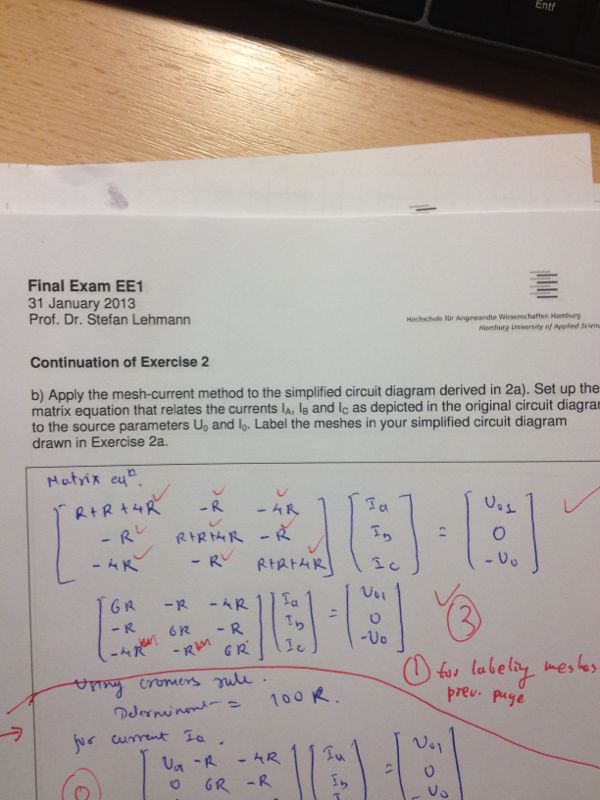 Entf
Final Exam EE1
31 January 2013
Prof. Dr. Stefan Lehmann
Hochschule für Angewandte Wissenschaften Hamburg
Hamburg University of Applied Scienc
Continuation of Exercise 2
b) Apply the mesh-current method to the simplified circuit diagram derived in 2a). Set up the
matrix equation that relates the currents IA, IB and IC as depicted in the original circuit diagram
to the source parameters U0 and I0. Label the meshes in your simplified circuit diagram
drawn in Exercise 2a.
Matrix eqn.
R+R+4R -R -4R Ia U01
-R R+R+4R -R Ib = 0
-4R -R R+R+4R Ic -U0
6R -R -4R Ia U01
-R 6R -R Ib = 0
-4R -R 6R Ic -U0
3
1 for labeling meshes
prev. page
Using cromers rule.
Determinent = 100R.
for current Ia.
U01 -R -4R Ia U01
0 6R -R Ib = 0
-U0
0